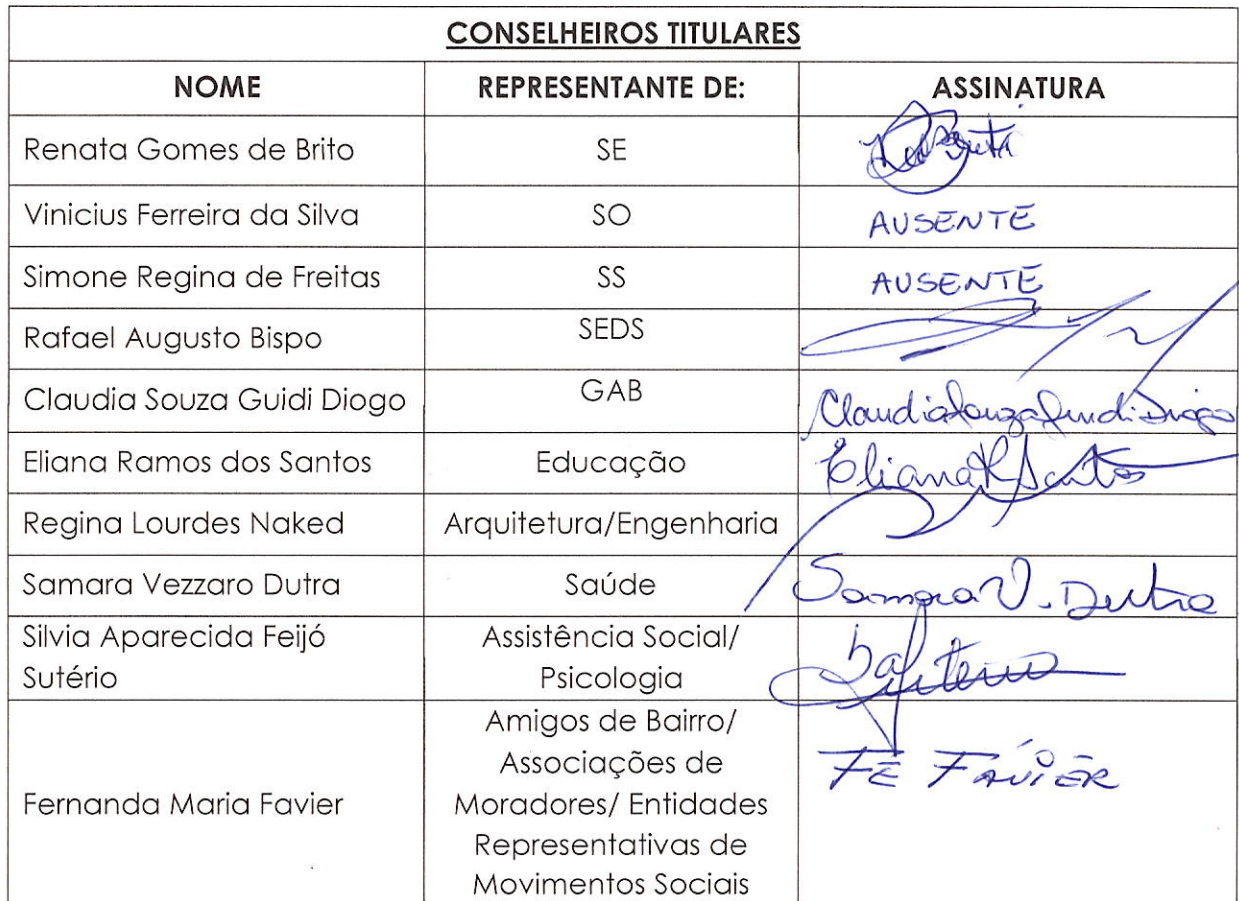 CONSELHEIROS TITULARES
NOME REPRESENTANTE DE: ASSINATURA
Renata Gomes de Brito SE
Vinicius Ferreira da Silva SO AUSENTE
Simone Regina de Freitas SS AUSENTE
Rafael Augusto Bispo SEDS
Claudia Souza Guidi Diogo GAB Claudia Souza Guidi Diogo
Eliana Ramos dos Santos Educação Eliana R Santos
Regina Lourdes Naked Arquitetura/Engenharia
Samara Vezzaro Dutra Saúde Samara V. Dutra
Silvia Aparecida Feijó
Sutério
Assistência Social/
Psicologia
Fernanda Maria Favier
Amigos de Bairro/
Associações de
Moradores/ Entidades
Representativas de
Movimentos Sociais
FÊ FAVIER